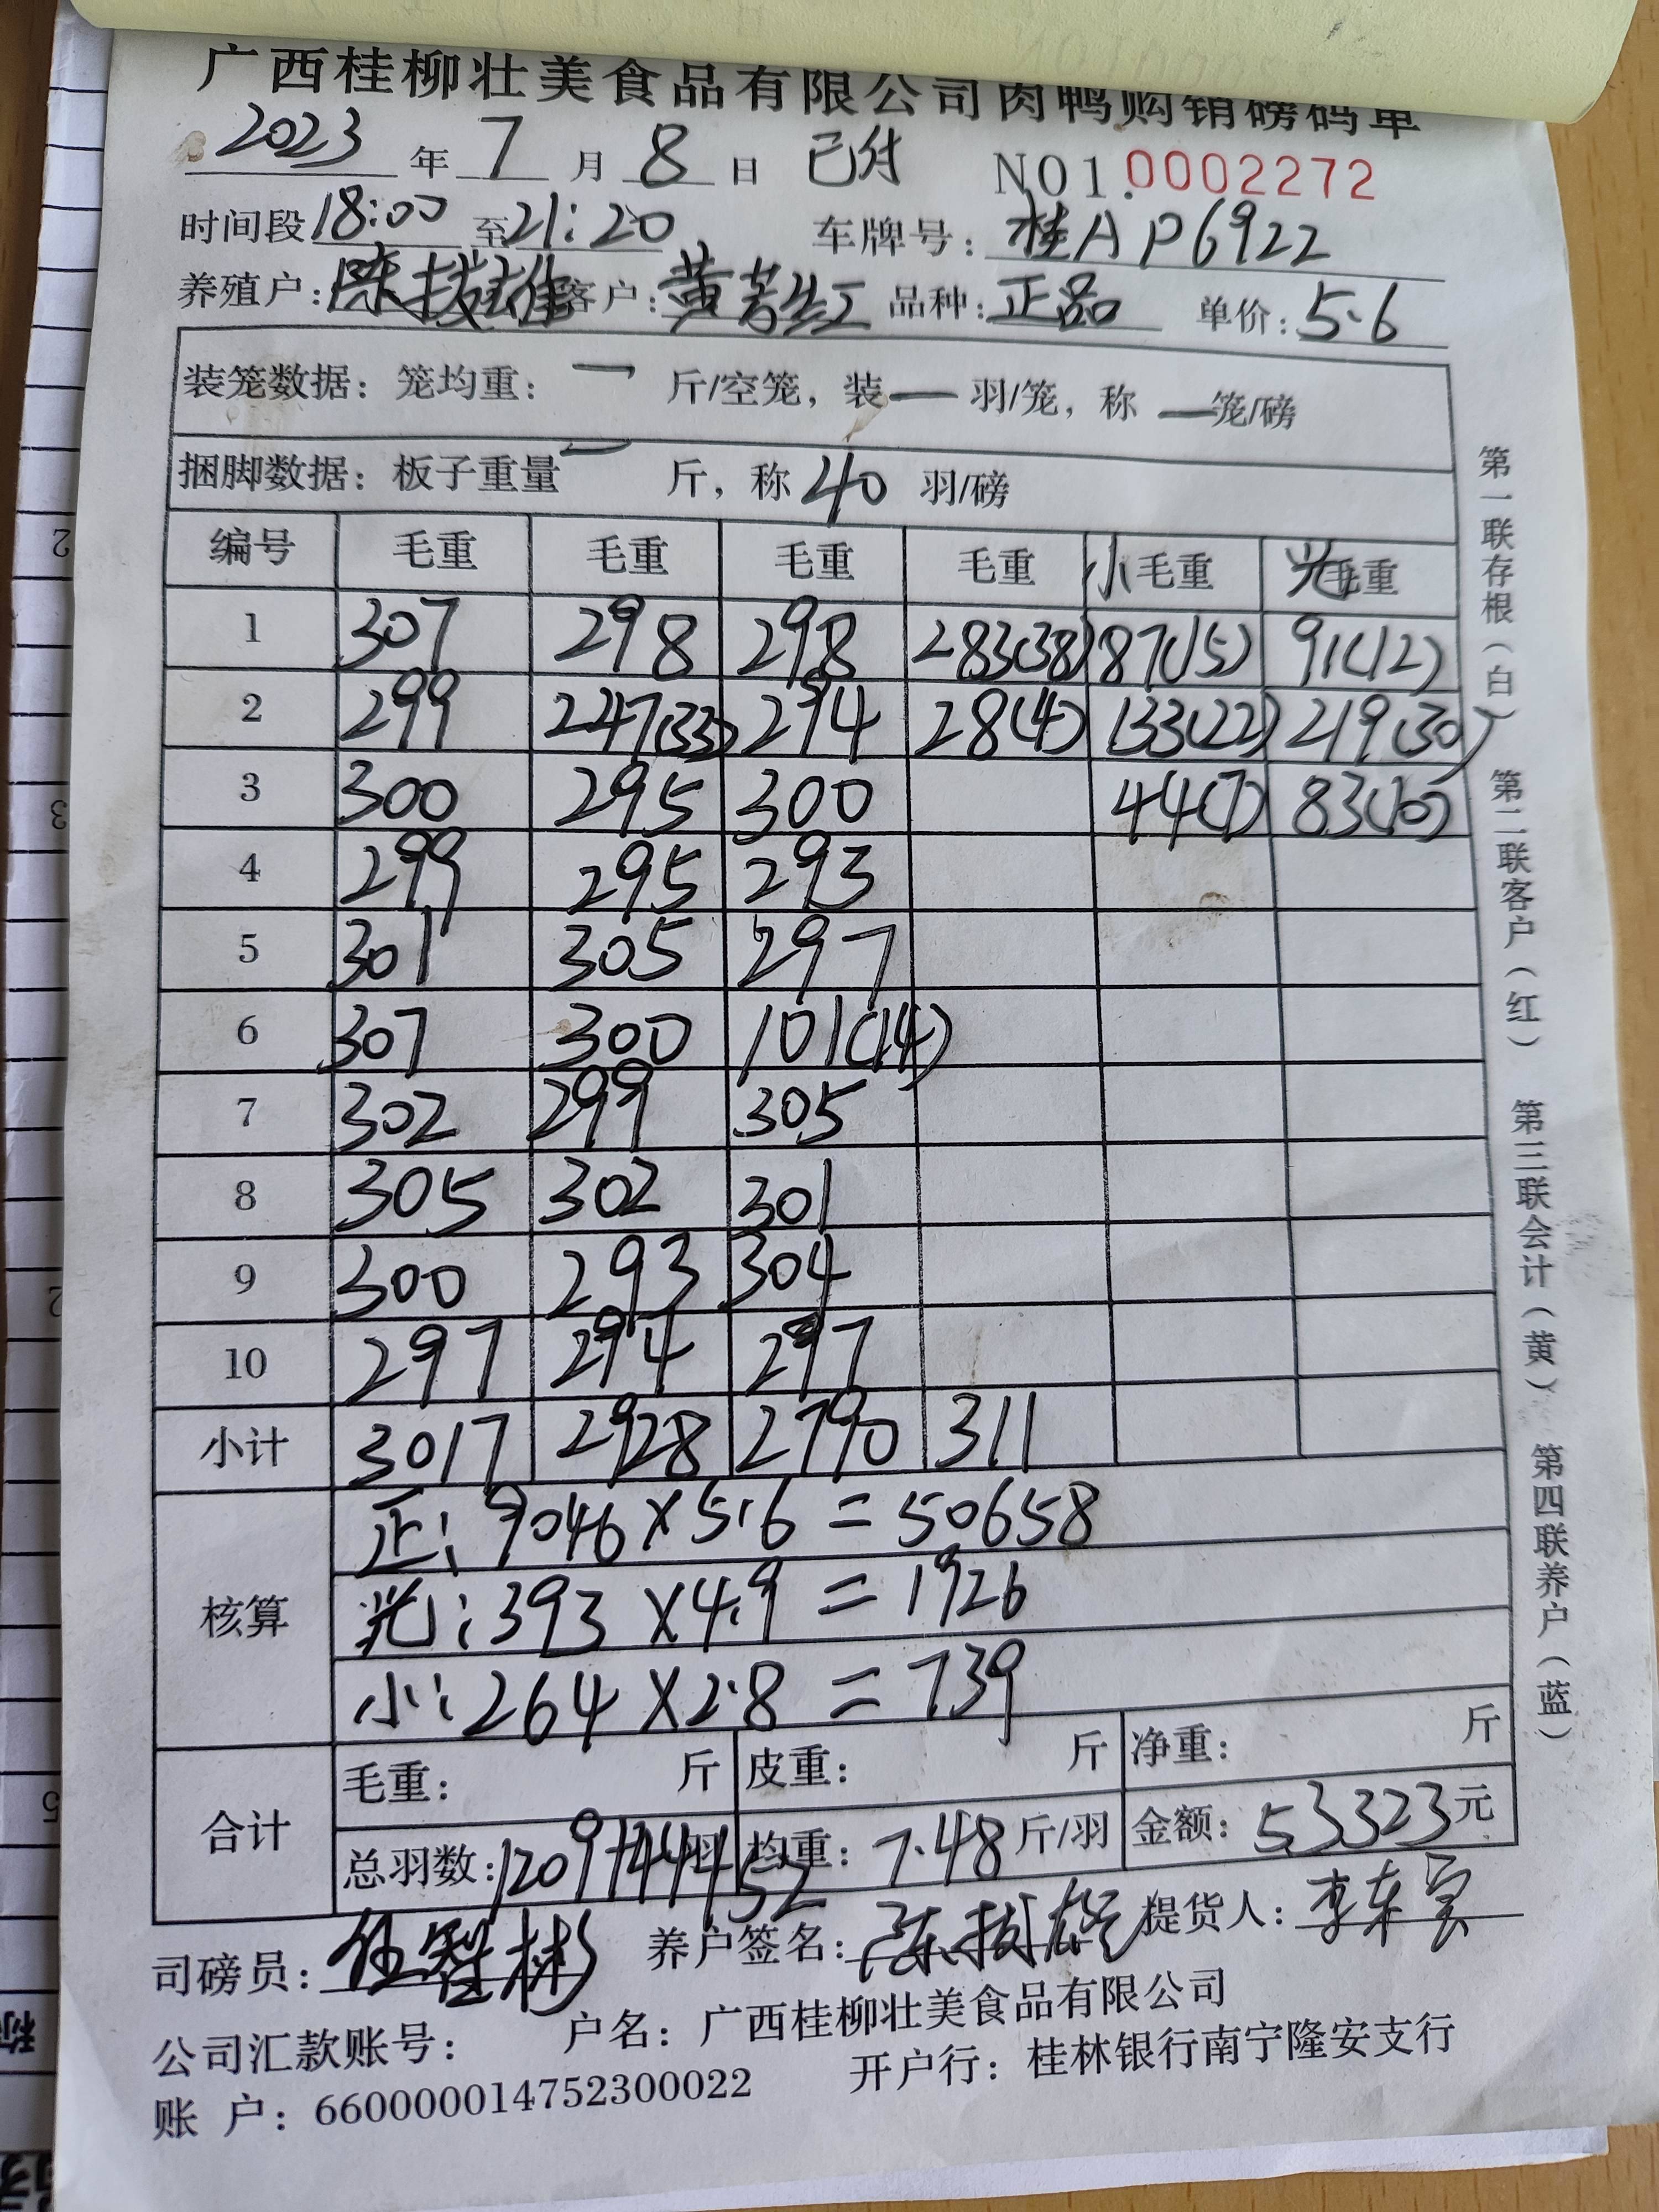 广西桂柳壮美食品有限公司肉鸭购销磅码单
2023 年 7 月 8 日 已付 NO1.0002272
时间段 18:00 至 21:20 车牌号: 桂AP6922
养殖户: 陈拔雄 客户: 黄芳红 品种: 正品 单价: 5.6
装笼数据: 笼均重: — 斤/空笼, 装 — 羽/笼, 称 — 笼/磅
捆脚数据: 板子重量 — 斤, 称 40 羽/磅
编号 毛重 毛重 毛重 毛重 小毛重 光毛重
1 307 298 298 283(38) 87(15) 91(12)
2 299 247(33) 294 28(4) 133(22) 219(30)
3 300 295 300 44(7) 83(10)
4 299 295 293
5 301 305 297
6 307 300 101(14)
7 302 299 305
8 305 302 301
9 300 293 304
10 297 294 297
小计 3017 2928 2790 311
核算
正: 9046×5.6=50658
光: 393×4.9=1926
小: 264×2.8=739
合计
毛重: 斤 皮重: 斤 净重: 斤
总羽数: 1209+44+52 羽 均重: 7.48 斤/羽 金额: 53323 元
司磅员: 伍智彬 养户签名: 陈拔雄 提货人: 李东
公司汇款账号: 户名: 广西桂柳壮美食品有限公司
账 户: 660000014752300022 开户行: 桂林银行南宁隆安支行
第一联存根(白) 第二联客户(红) 第三联会计(黄) 第四联养户(蓝)